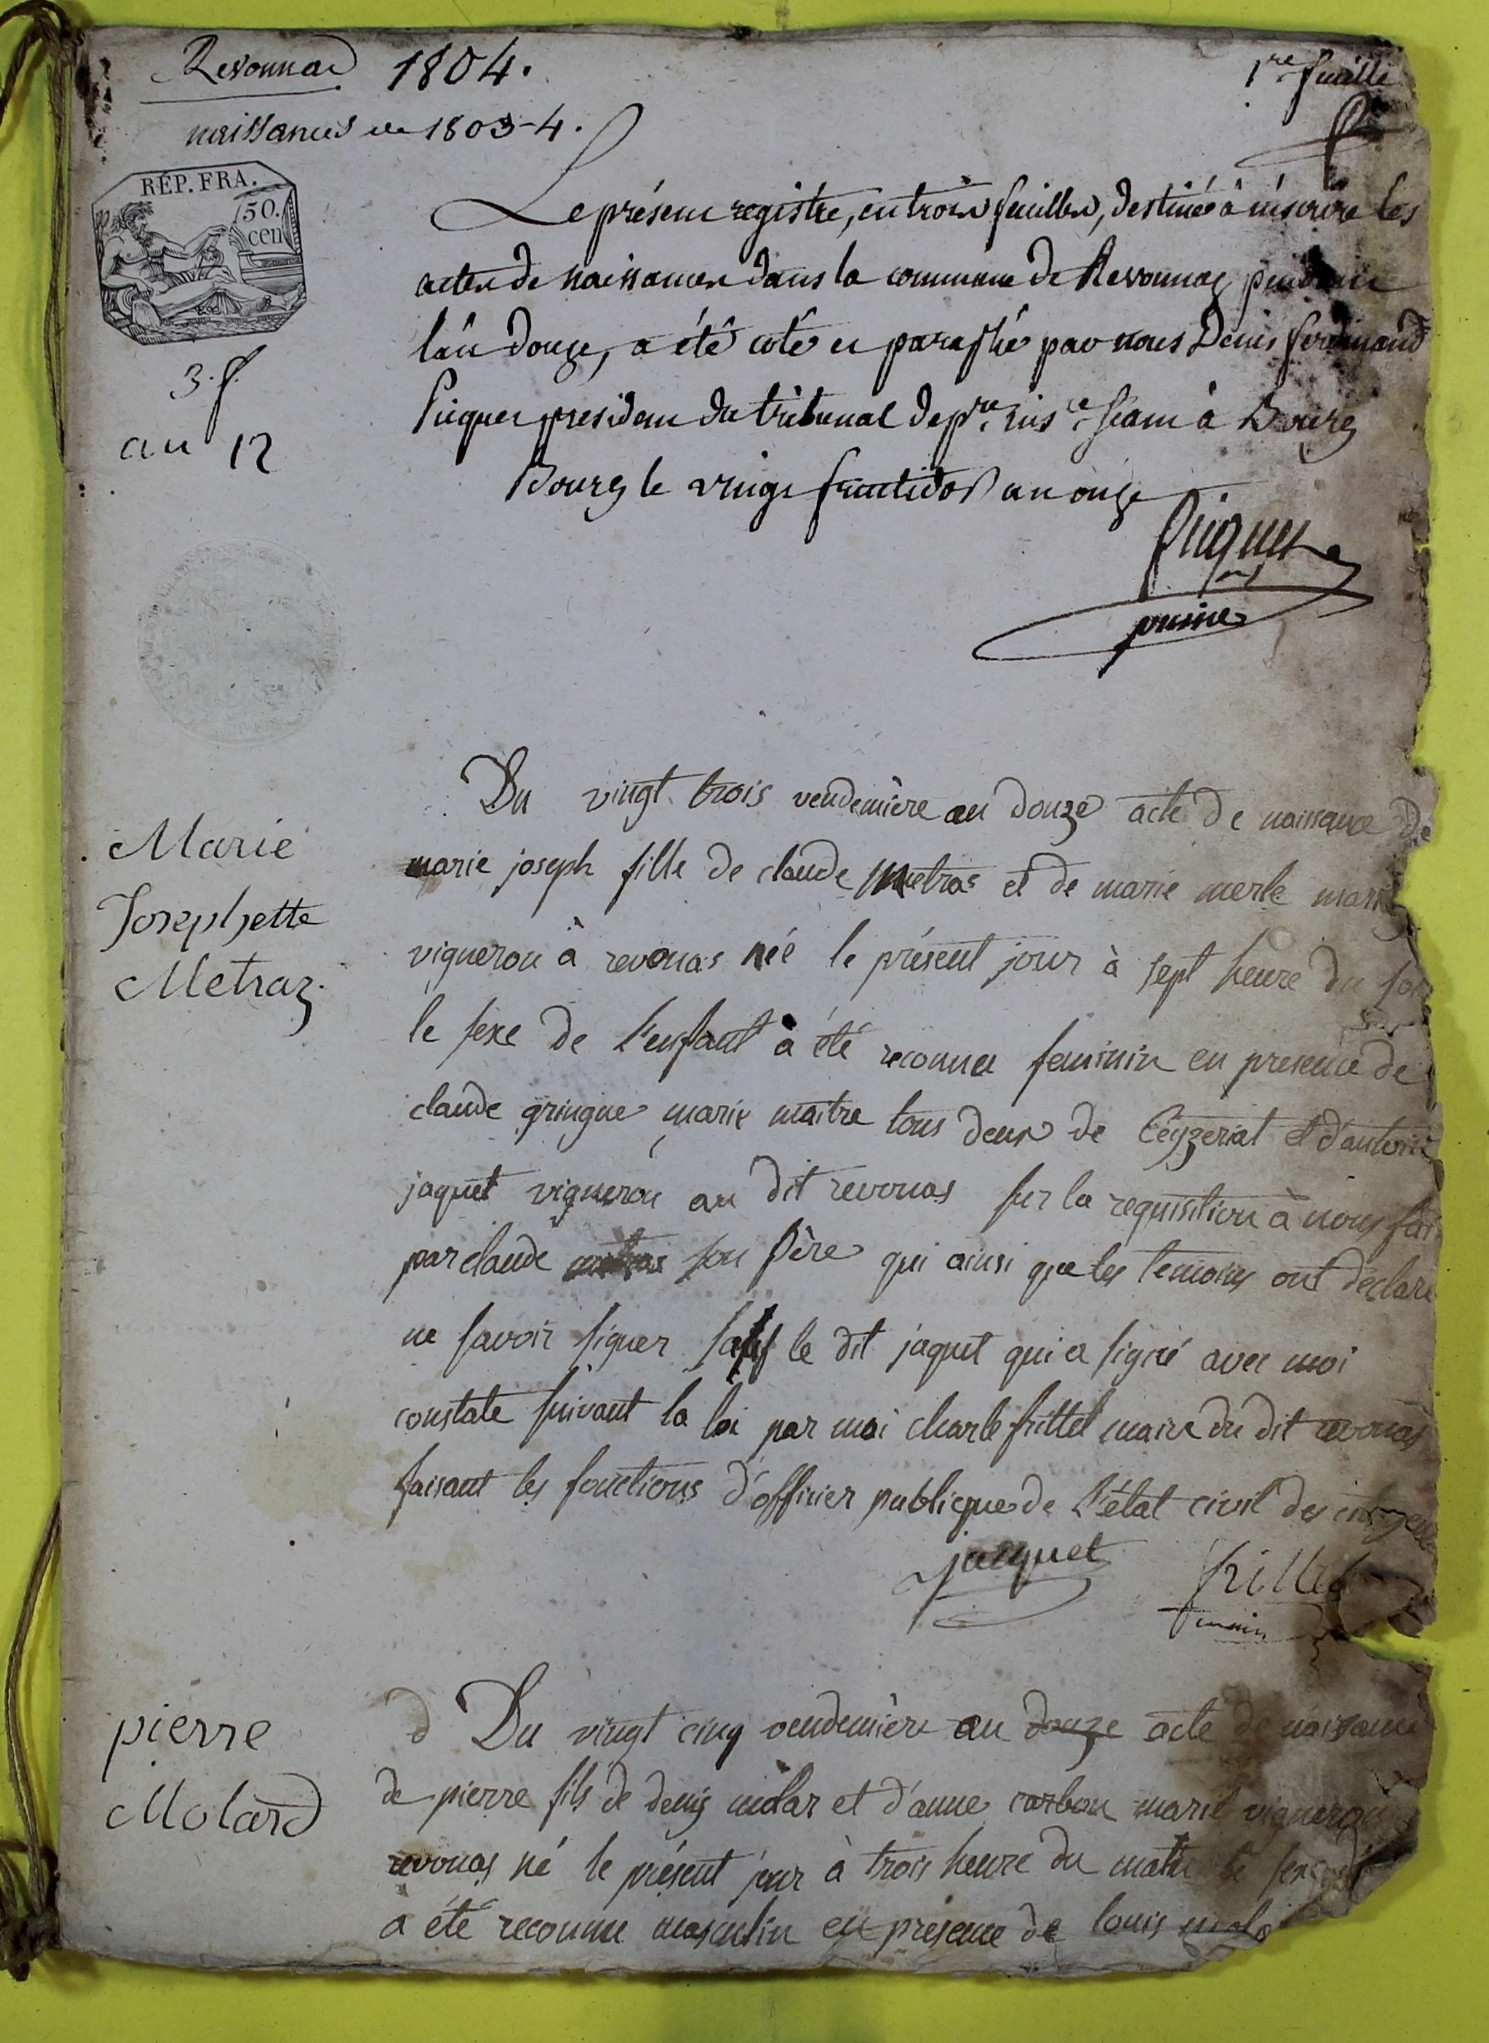 Revonnas 1804.
1re feuille
naissances de 1803-4.
RÉP. FRA.
50.
cen
3. f.
an 12
Le présent registre, en trois feuilles, destiné à inscrire les
actes de naissances dans la commune de Revonnas pendant
l'an douze, a été coté et paraphé par nous Denis ferdinand
Picquet president du tribunal de pre. ins ce. séant à Bourg
Bourg le vingt fructidor an onze
Picquet
Marie
Josephette
Metraz.
Du vingt trois vendemière an douze acte de naissance de
marie joseph fille de claude Metras et de marie merle mariés
vigneron à revonas née le présent jour à sept heure du soir
le sexe de l'enfant à été reconnu feminin en presence de
claude gringue marie maitre tous deux de Ceyzeriat et d'antoine
jaquet vigneron au dit revonas sur la requisition à nous fai
par claude metras son père qui ainsi que les temoins ont déclaré
ne savoir signer sauf le dit jaquet qui a signé avec moi
constaté suivant la loi par moi charle frillet maire du dit revonas
faisant les fonctions d'officier publique de l'état civil des
jacquet frillet
maire
pierre
Molard
d Du vingt cinq vendemière an douze acte de naissance
de pierre fils de denis molar et d'anne carbon marié vigneron
revonas né le présent jour à trois heure du matin le sexe
a été reconnu masculin en presence de louis